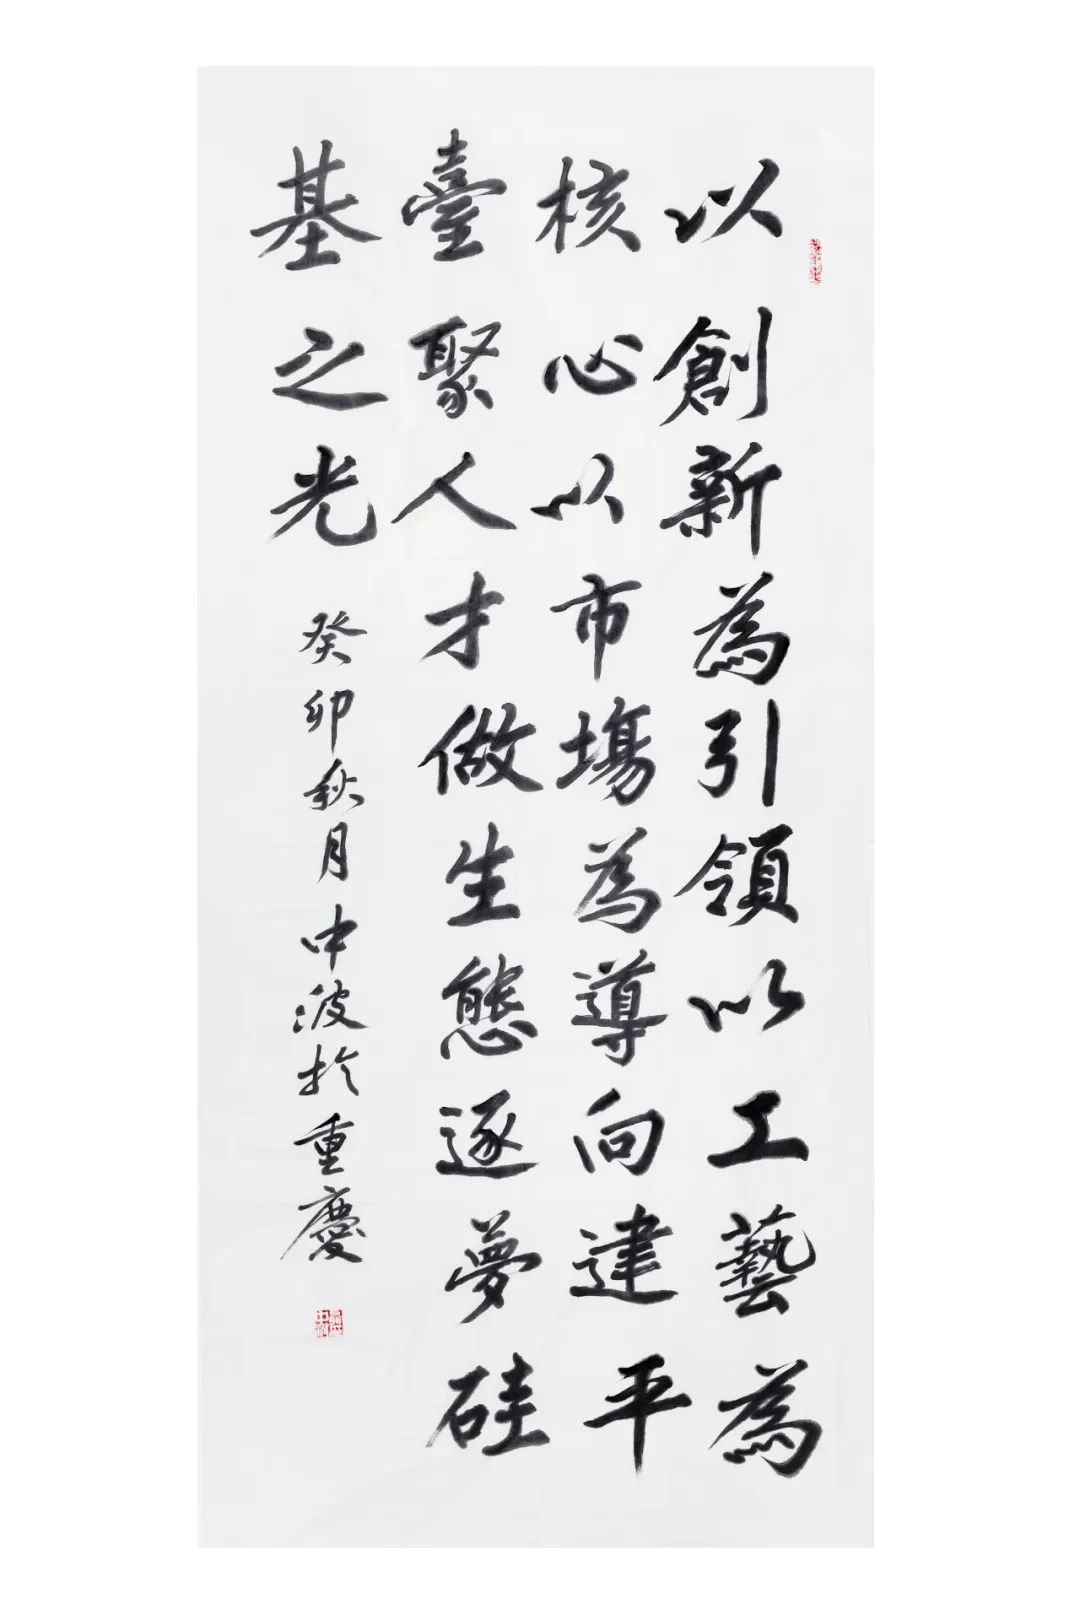 以創新為引領以工藝為
核心以市場為導向建平
臺聚人才做生態逐夢硅
基之光
癸卯秋月中波於重慶